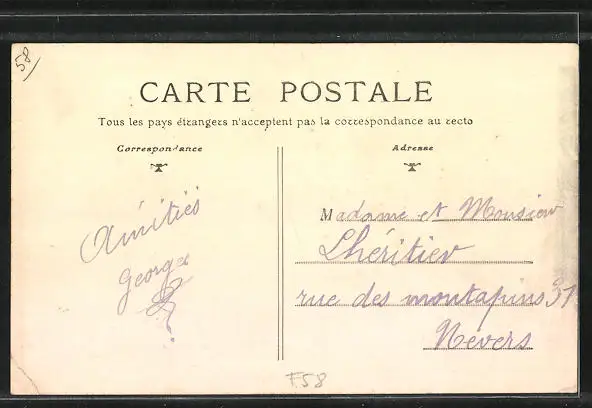 58
CARTE POSTALE
Tous les pays étrangers n'acceptent pas la correspondance au recto
Correspondance
Adresse
Amitiés
Georges
Madame et Monsieur
Lhéritier
rue des montapins 31
Nevers
F58